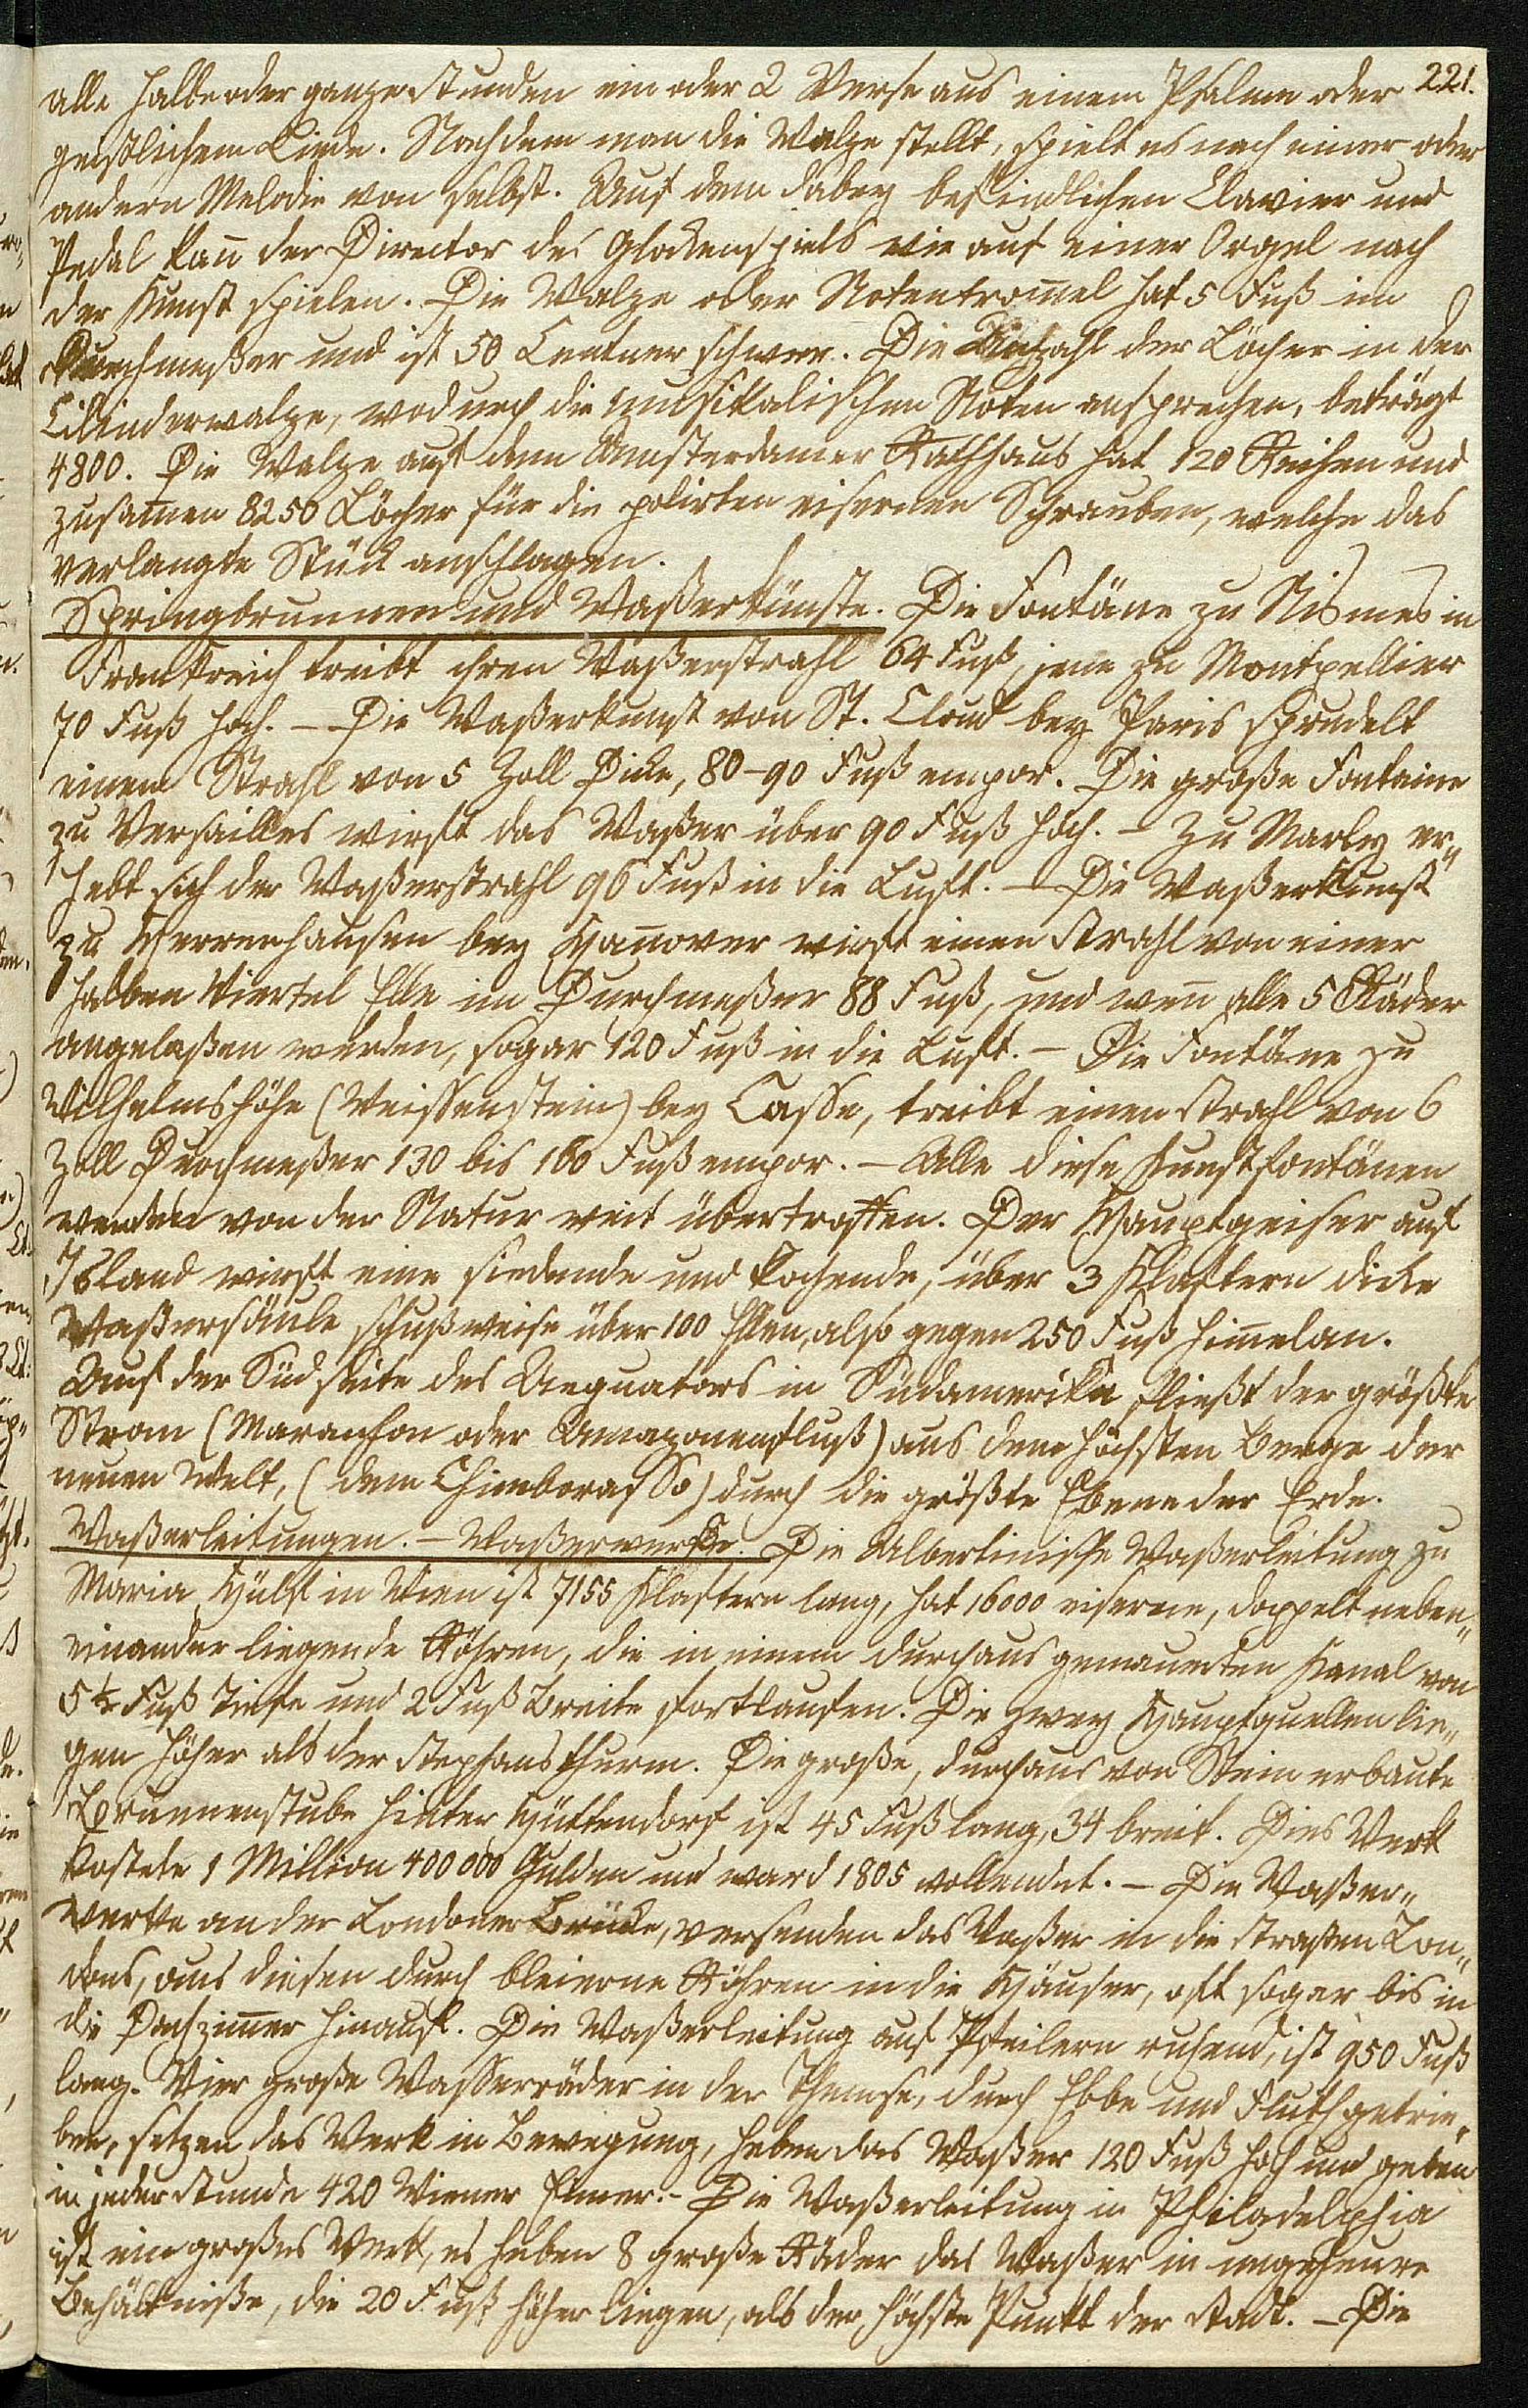 alle halbe oder ganze Stunden ein oder 2 Verse aus einem Psalme oder 221.
geistlichem Liede. Nachdem man die Walze stellt, spielt es nach einer oder
andern Melodie von selbst. Auf dem dabey befindlichen Clavier und
Pedal kan̅ der Director des Glockenspiels wie auf einer Orgel nach
der Kunst spielen. Die Walze oder Notentrom̅el hat 5 Fuß im
Durchmeßer und ist 50 Centner schwer. Die Anzahl der Löcher in der
Cilinderwalze, wodurch die musikalischen Noten ansprechen, beträgt
4800. Die Walze auf dem Amsterdamer Rathhaus hat 120 Reihen und
zusam̅en 8250 Löcher für die polirten eisernen Schrauben, welche das
verlangte Stück anschlagen.
Springbrunnen und Waßerkünste. Die Fontäne zu Nismes in
Frankreich treibt ihren Waßerstrahl 64 Fuß, jene zu Montpellier
70 Fuß hoch. – Die Waßerkunst von St. Cloud bey Paris sprudelt
einen Strahl von 5 Zoll Dicke, 80–90 Fuß empor. Die große Fontaine
zu Versailles wirft das Waßer über 90 Fuß hoch. – Zu Marly er„
hebt sich der Waßerstrahl 96 Fuß in die Luft. – Die Waßerkunst
zu Herrenhausen bey Han̅over wirft einen Strahl von einer
halben Viertel Elle im Durchmeßer 88 Fuß, und wen̅ alle 5 Räder
angelaßen werden, sogar 120 Fuß in die Luft. – Die Fontäne zu
Wilhelmshöhe (Weissenstein) bey Casse, treibt einen Strahl von 6
Zoll Durchmeßer 130 bis 160 Fuß empor. – Alle diese Kunstfontänen
werden von der Natur weit übertroffen. Der Hauptgeiser auf
Island wirft eine siedende und kochende, über 3 Klaftern dicke
Waßersäule schußweise über 100 Ellen, also gegen 250 Fuß him̅elan.
Auf der Südseite des Aequators in Südamerika fließt der größte
Strom (Maranhon oder Amazonenfluß) aus dem höchsten Berge der
neuen Welt, (dem Chimborasso) durch die größte Ebene der Erde.
Waßerleitungen. – Waßerwerke. Die Albertinische Waßerleitung zu
Maria Hülf in Wien ist 7155 Klaftern lang, hat 16000 eiserne, doppelt neben„
einander liegende Röhren, die in einem durchaus gemauerten Kanal von
5½ Fuß Tiefe und 2 Fuß Breite fortlaufen. Die zwey Hauptquellen lie„
gen höher als der Stephansthurm. Die große, durchaus von Stein erbaute
Brunnenstube hinter Hüttendorf ist 45 Fuß lang, 34 breit. Dies Werk
kostete 1 Million 400000 Gulden und ward 1805 vollendet. – Die Waßer„
werke an der Londoner Brücke, versenden das Waßer in die Straßen Lon„
dons, aus diesen durch bleierne Röhren in die Häuser, oft sogar bis in
die Dachzim̅er hinauf. Die Waßerleitung auf Pfeilern ruhend, ist 950 Fuß
lang. Vier große Wasserräder in der Themse, durch Ebbe und Fluth getrie„
ben, setzen das Werk in Bewegung, heben das Waßer 120 Fuß hoch und geben
in jeder Stunde 420 Wiener Eimer. – Die Waßerleitung in Philadelphia
ist ein großes Werk, es heben 8 große Räder das Waßer in ungeheure
Behältniße, die 20 Fuß höher liegen, als der höchste Punkt der Stadt. – Die